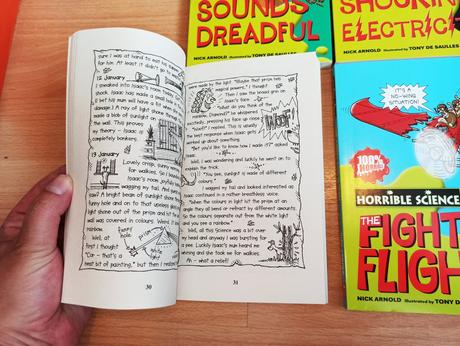 shine was at hand to wait his supper
for him. At least it didn't go to
12 January
I sneaked into Isaac's room
shock. Isaac has made a small hole
(I bet his mum will have a lot
damage.) A ray of light shone through
made a blob of sunlight on
the wall. This proved
my theory – Isaac is
completely bonkers.
19 January
Lovely crisp, sunny
for walkies. So I
Isaac's room joyfully
wagging my tail. And
sun? A bright beam of sunlight shone
funny hole and on to that wedge
light shone out of the prism and hit the
wall was covered in colours,
rainbow.
Well, at
first I thought
"Cor – that's a
neat bit of painting," but then I realized
funny
hole
prism
30
were made by the light. "Maybe that prism has
magical powers," I thought.
Then I saw the broad grin on
Isaac's face.
"What do you think of the
rainbow, Diamond?" he whispered
excitedly, pressing his face up close.
"Woof!" I replied. This is usually
the best response when Isaac gets
worked up about something.
"D'you like to know how I made it?" asked
Isaac.
Well, I was wondering and luckily he went on to
explain the trick.
"You see, sunlight is made of different
colours."
I wagged my tail and looked interested as
Isaac continued in a rather breathless voice.
"When the colours in light hit the prism at an
angle they all bend or refract by different amounts.
So the colours separate out from the white light
and you see a rainbow."
Well, all this Science was a bit over
my head and anyway I was bursting for
a pee. Luckily Isaac's mum heard me
whining and she took me for walkies.
Ah – what a relief!
WOOF!
31
SOUNDS
DREADFUL
NICK ARNOLD Illustrated by TONY DE SAULLES
SHOCKING
ELECTRICITY
NICK ARNOLD Illustrated by TONY DE SAULLES
IT'S A
NO-WING
SITUATION!
100%
HORRIBLE SCIENCE
THE
FIGHT
FLIGH
NICK ARNOLD Illustrated by TONY DE SAULLES